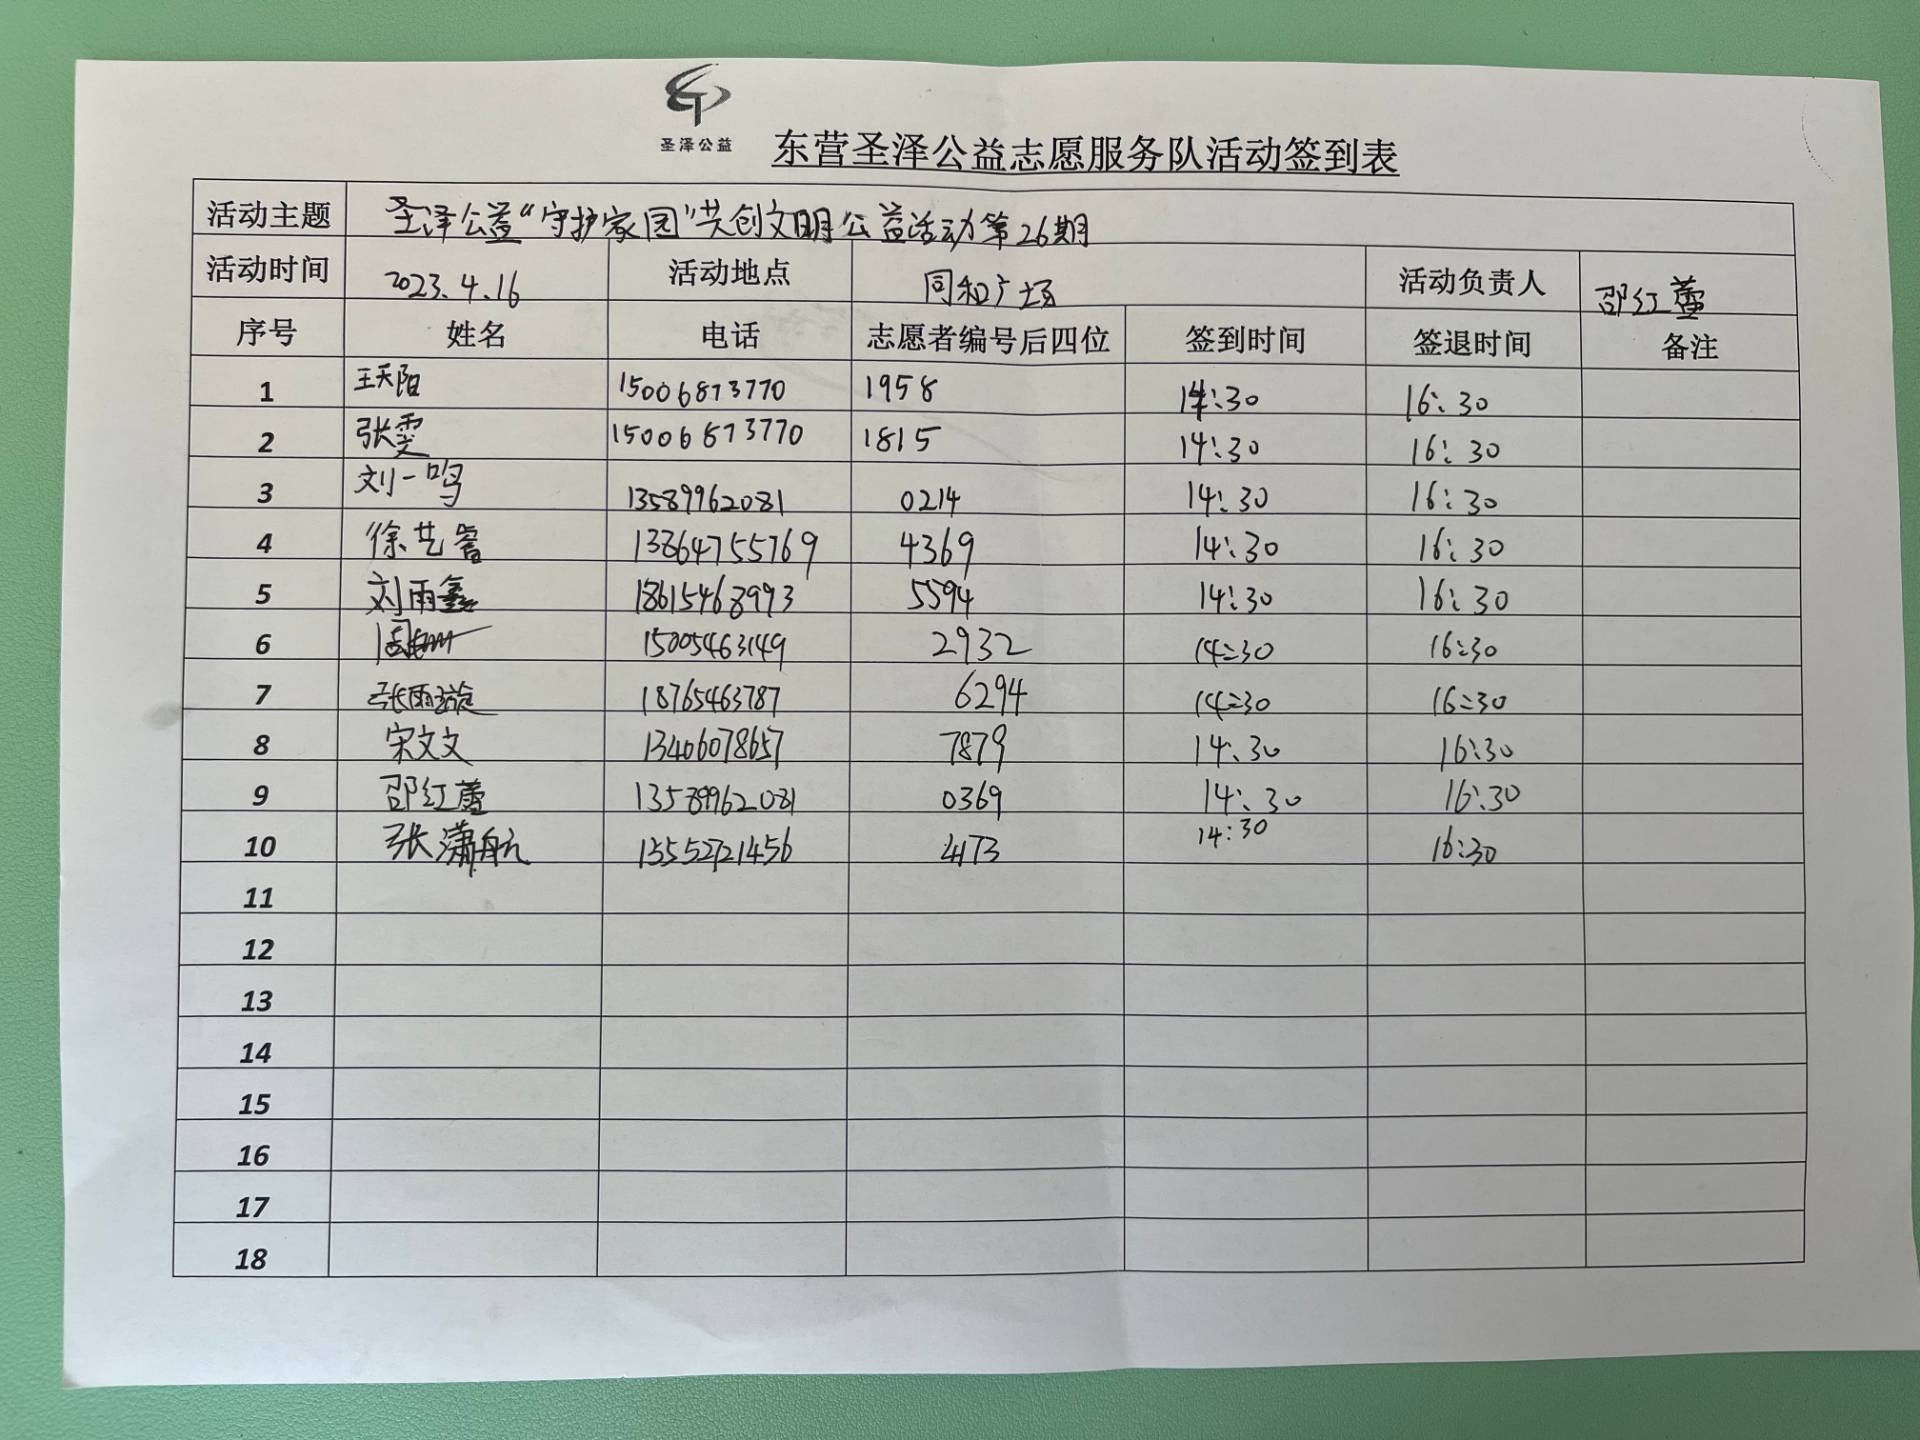 圣泽公益
东营圣泽公益志愿服务队活动签到表
活动主题 圣泽公益“守护家园”共创文明公益活动第26期
活动时间 2023.4.16 活动地点 同和广场 活动负责人 邵红蕾
序号 姓名 电话 志愿者编号后四位 签到时间 签退时间 备注
1 王天阳 15006873770 1958 14:30 16:30
2 张雯 15006873770 1815 14:30 16:30
3 刘一鸣 13589962081 0214 14:30 16:30
4 徐艺睿 13864755769 4369 14:30 16:30
5 刘雨鑫 18615468993 5594 14:30 16:30
6 15005463149 2932 14:30 16:30
7 张雨璇 18765463787 6294 14:30 16:30
8 宋文文 13406078657 7879 14:30 16:30
9 邵红蕾 13589962081 0369 14:30 16:30
10 张潇航 13552721456 4173 14:30 16:30
11
12
13
14
15
16
17
18